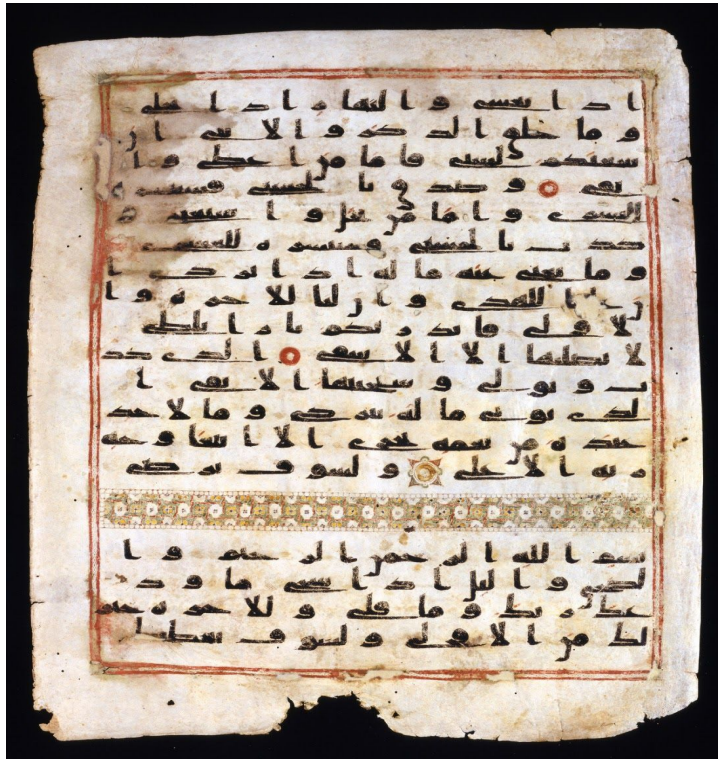 اذا يغشى والنهار اذا تجلى
وما خلق الذكر والانثى ان
سعيكم لشتى فاما من اعطى وا
تقى وصدق بالحسنى فسنيسره
لليسرى واما من بخل واستغنى و
كذب بالحسنى فسنيسره للعسرى
وما يغنى عنه ماله اذا تردى ا
ن علينا للهدى وان لنا للاخرة وا
لاولى فانذرتكم نارا تلظى
لا يصليها الا الاشقى الذى كذ
ب وتولى وسيجنبها الاتقى ا
لذى يوتى ماله يتزكى وما لاحد
عنده من نعمة تجزى الا ابتغا وجه
ربه الاعلى ولسوف يرضى
بسم الله الرحمن الرحيم وا
لضحى واليل اذا سجى ما ود
عك ربك وما قلى وللاخرة خير
لك من الاولى ولسوف يعطيك